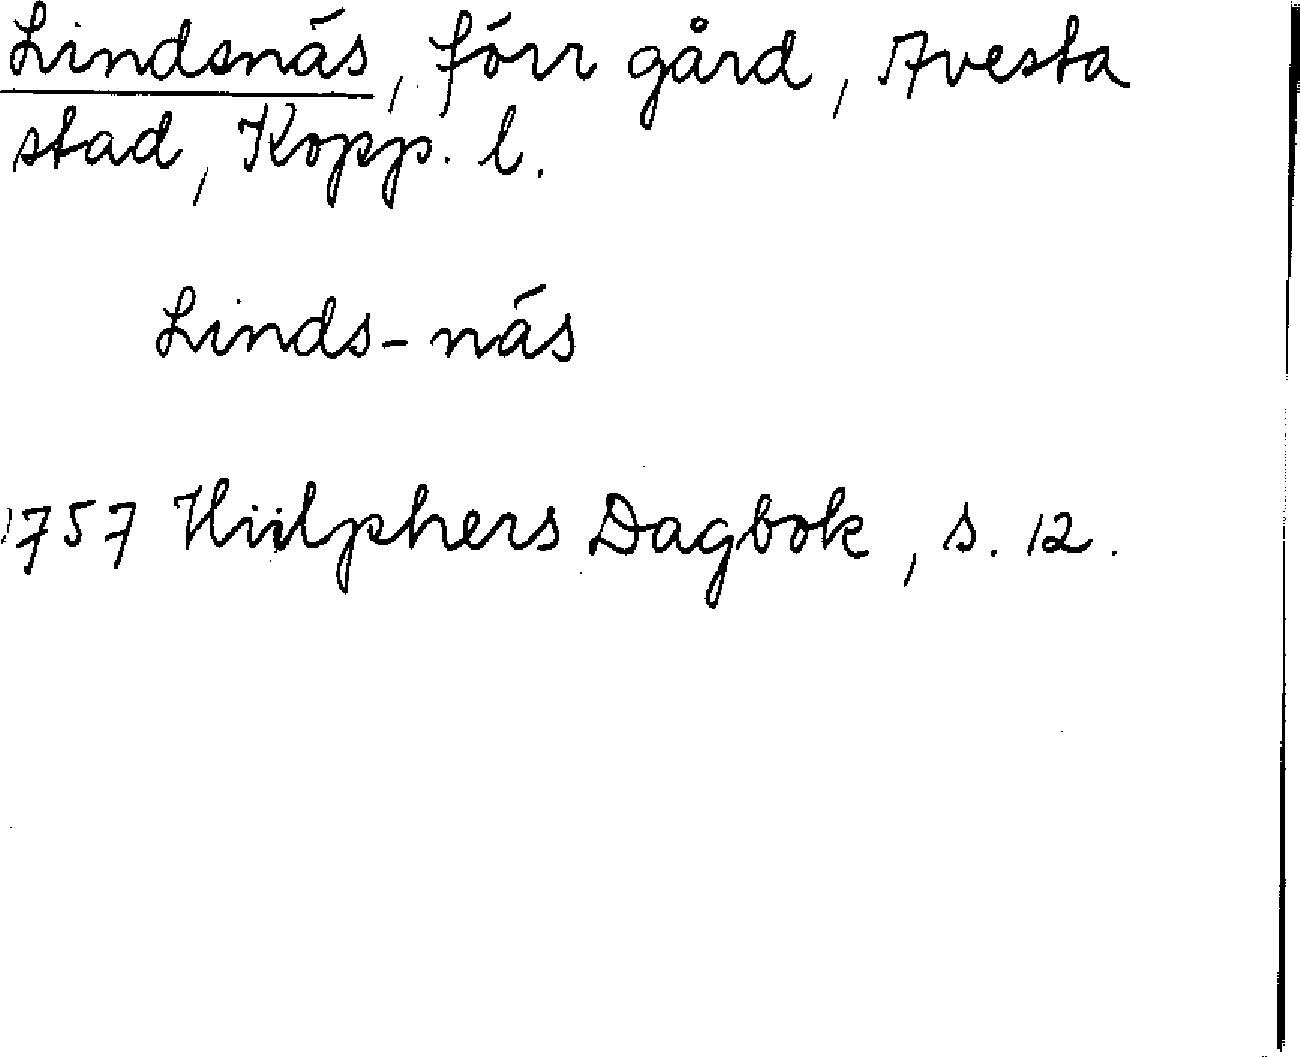 Lindsnäs, förr gård, Avesta
stad, Kopp. l.
Linds-näs
1757 Hülphers Dagbok, s. 12.